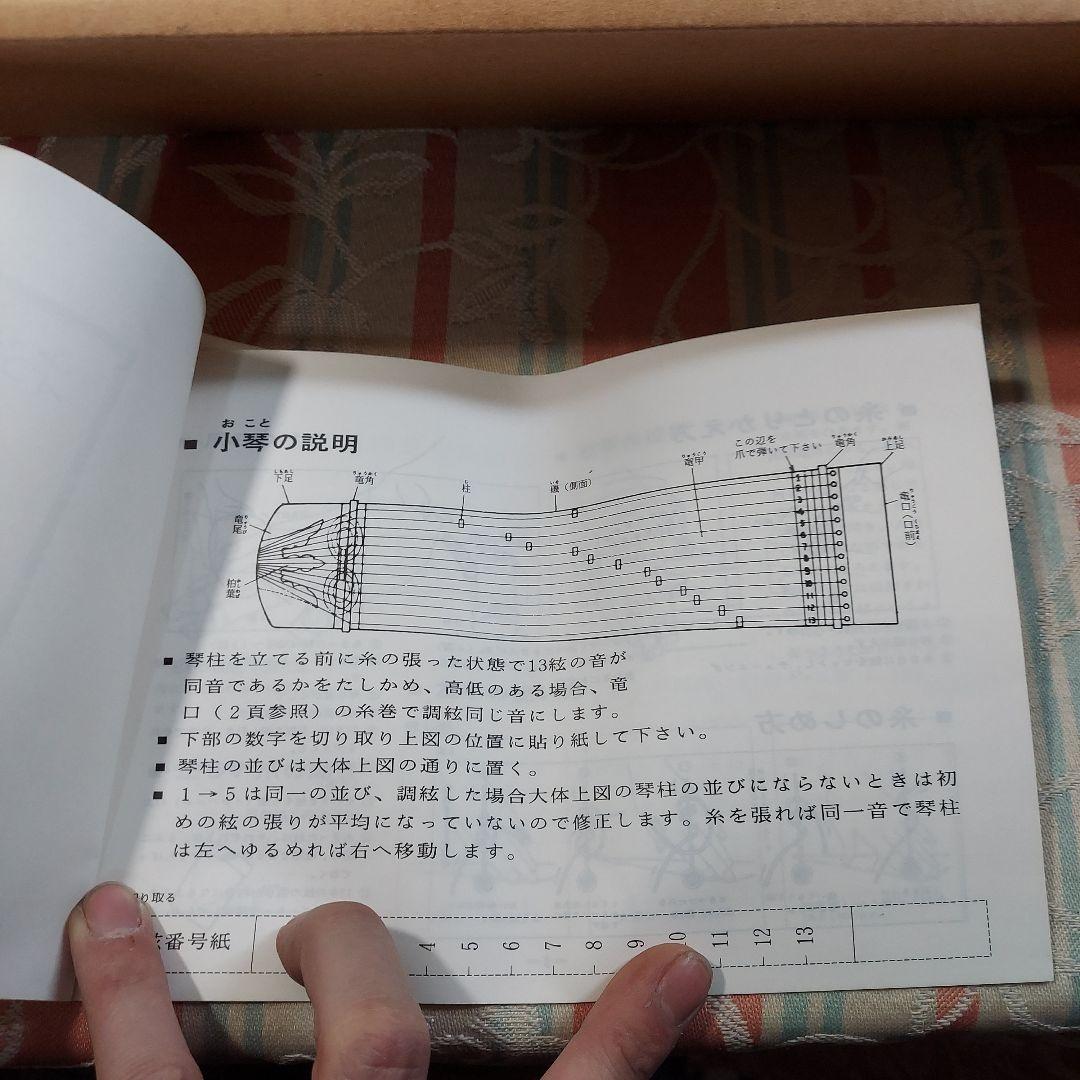 ■ 小琴の説明
おこと
下足
しもあし
竜角
りゅうかく
柱
じ
磯（側面）
いそ
竜甲
りゅうこう
この辺を
爪で弾いて下さい
竜角
りゅうかく
上足
かみあし
竜尾
りゅうび
柏葉
竜口（口前）
1
2
3
4
5
6
7
8
9
10
11
12
13
■ 琴柱を立てる前に糸の張った状態で13絃の音が
同音であるかをたしかめ、高低のある場合、竜
口（２頁参照）の糸巻で調絃同じ音にします。
■ 下部の数字を切り取り上図の位置に貼り紙して下さい。
■ 琴柱の並びは大体上図の通りに置く。
■ １→５は同一の並び、調絃した場合大体上図の琴柱の並びにならないときは初
めの絃の張りが平均になっていないので修正します。糸を張れば同一音で琴柱
は左へゆるめれば右へ移動します。
り取る
絃番号紙
4 5 6 7 8 9 10 11 12 13